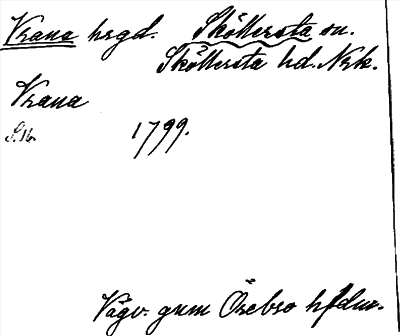 Vrana hrgd. Sköllersta sn.
Sköllersta hd. Nrk.
Vrana
S. 16. 1799.
Vägv. gnm Örebro hfdm.